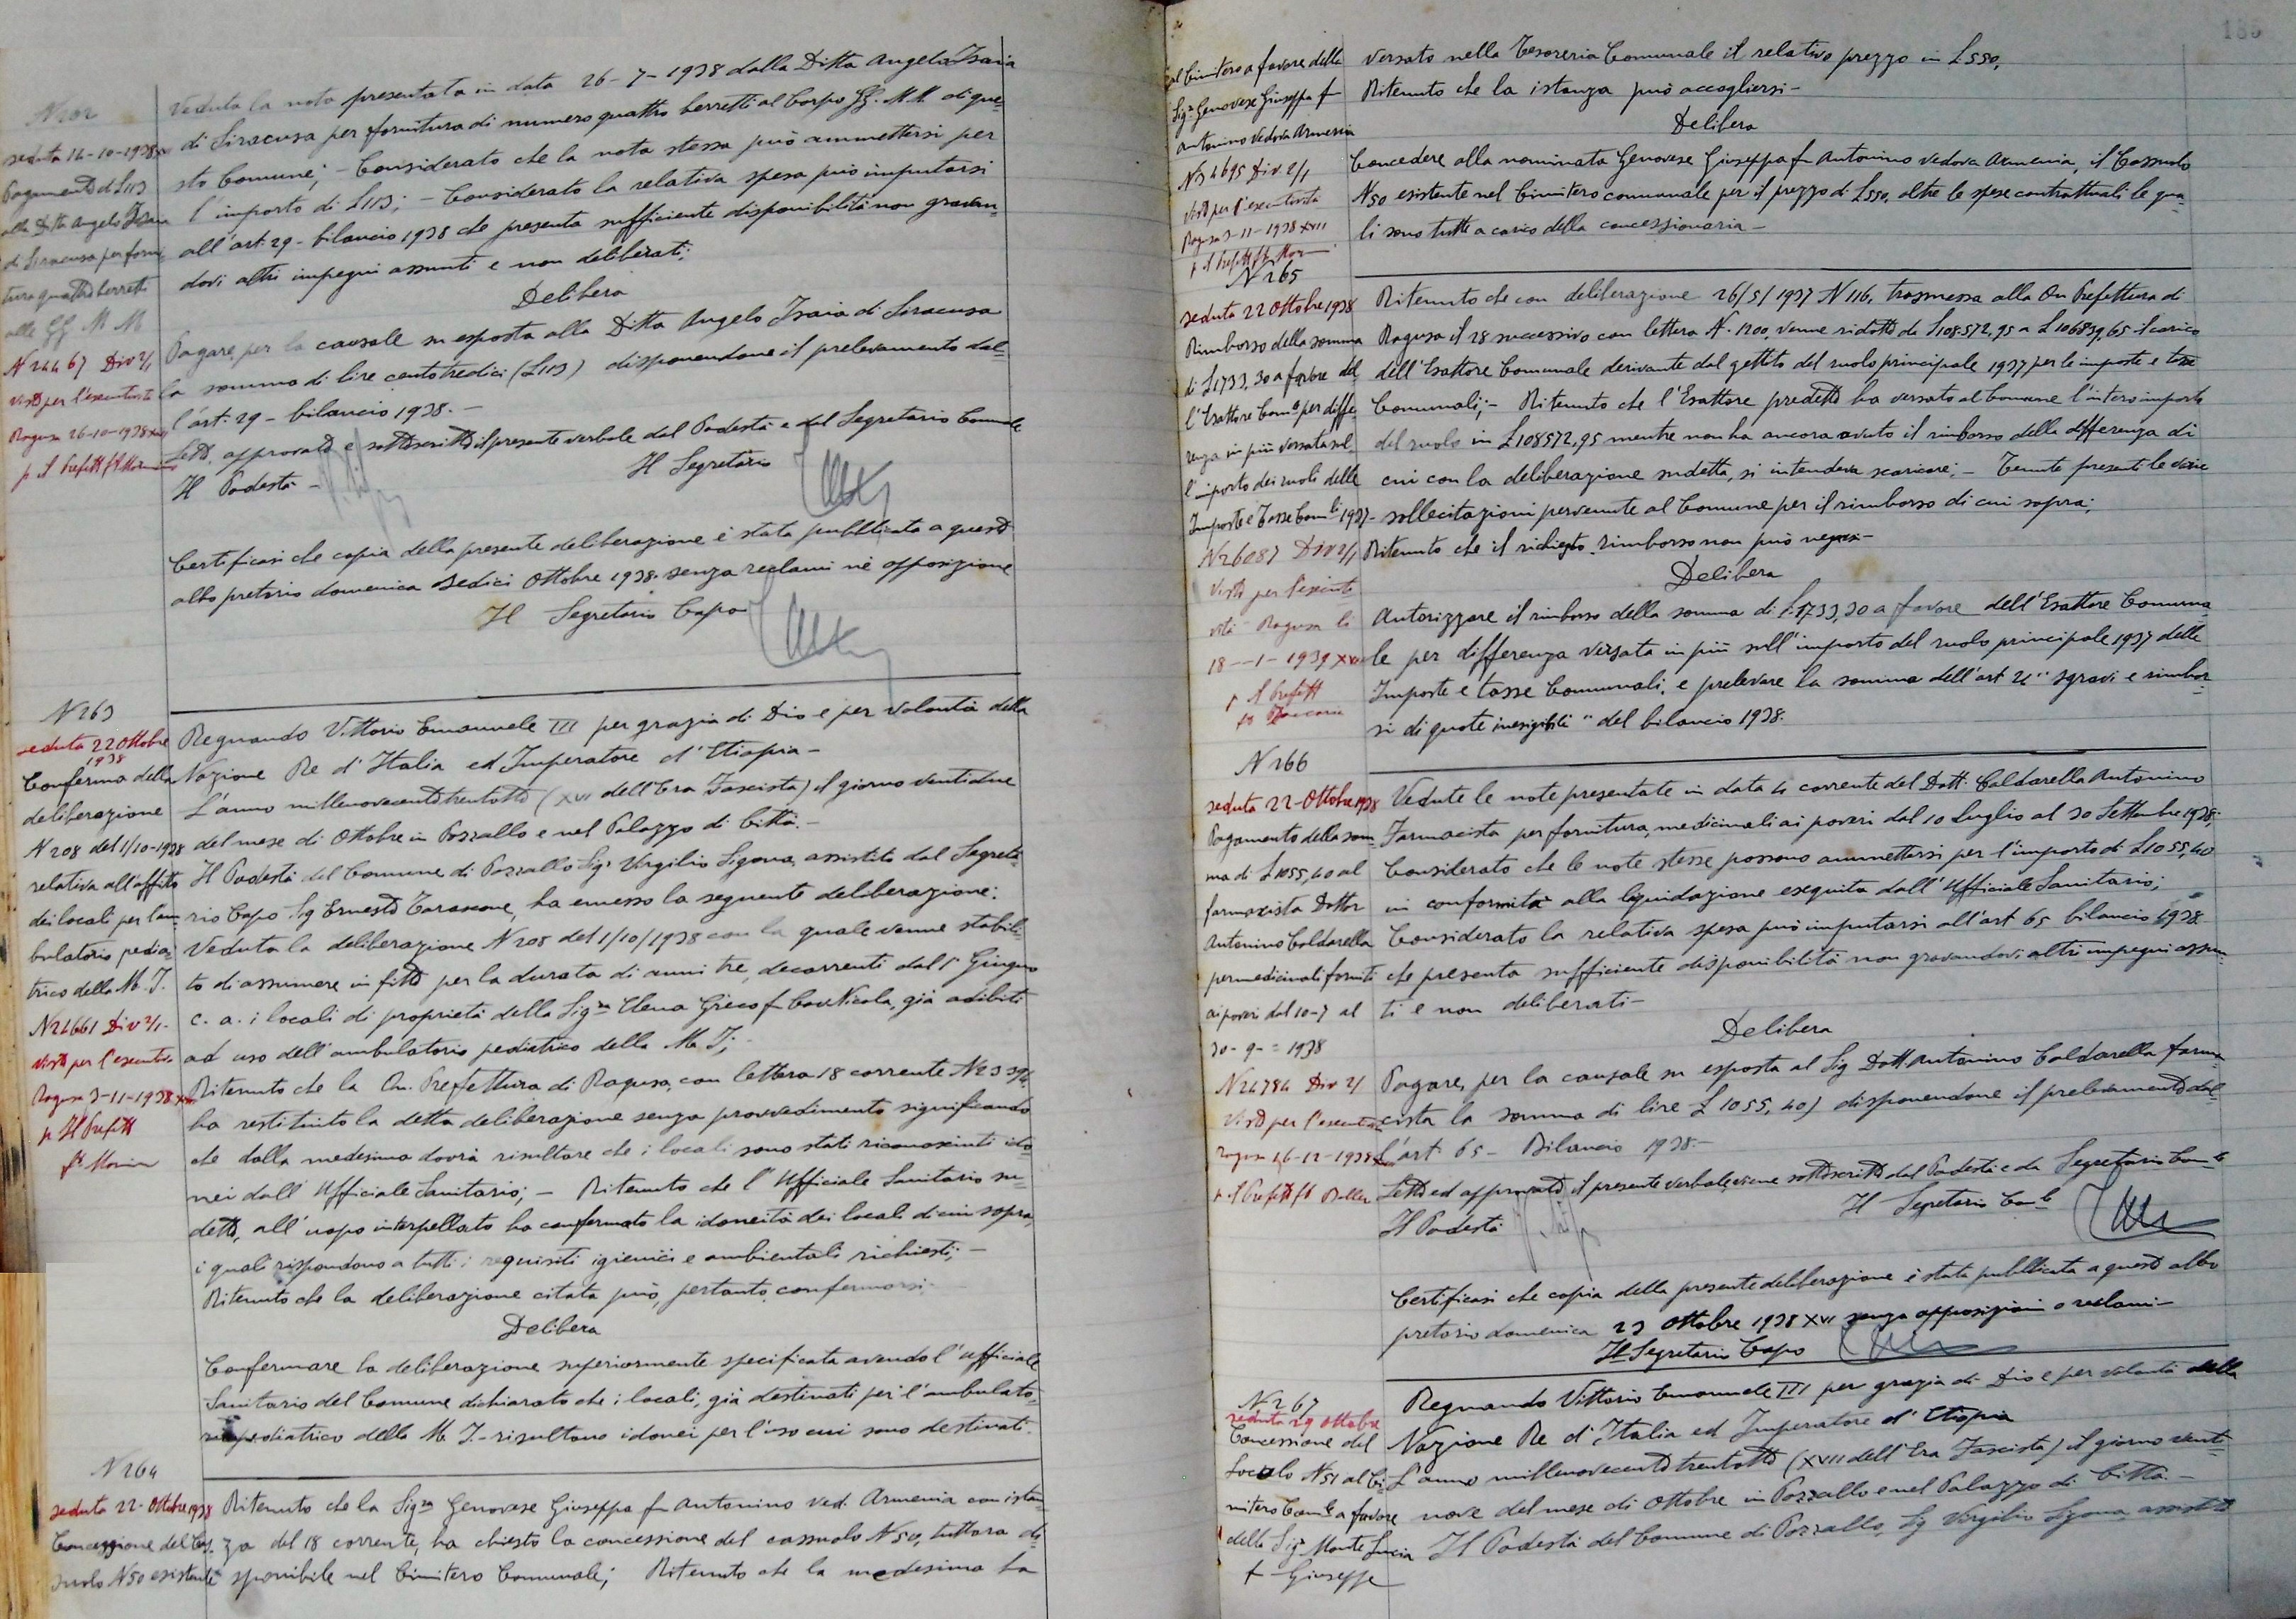 N 202
seduta 14-10-1938
Pagamento di L 113
alla Ditta Angelo Isaia
di Siracusa per forni
tura quattro berretti
alle GG M M
N 24467 Div 2/1
Visto per l'esecutività
Ragusa 26-10-1938
p Il Prefetto
Veduta la nota presentata in data 26-7-1938 dalla Ditta Angelo Isaia
di Siracusa per fornitura di numero quattro berretti al Corpo GG. M.M. di que=
sto Comune; - Considerato che la nota stessa può ammettersi per
l'importo di L 113; - Considerato la relativa spesa può imputarsi
all'art. 29 - bilancio 1938 che presenta sufficiente disponibilità non gravan=
dovi altri impegni assunti e non deliberati;
Delibera
Pagare, per la causale su esposta alla Ditta Angelo Isaia di Siracusa
la somma di lire centotredici (L 113) disponendone il prelevamento dal=
l'art. 29 - bilancio 1938. -
Letto, approvato e sottoscritto il presente verbale dal Podestà e dal Segretario Comunale
Il Podestà - Il Segretario
Certificasi che copia della presente deliberazione è stata pubblicata a questo
albo pretorio domenica sedici Ottobre 1938. senza reclami nè opposizione
Il Segretario Capo
N 263
seduta 22 Ottobre
1938
Conferma della
deliberazione
N 208 del 1/10-1938
relativa all'affitto
dei locali per l'am
bulatorio pedia
trico della M. I.
N 24661 Div 2/1-
Visto per l'esecutività
Ragusa 3-11-1938
p Il Prefetto
Regnando Vittorio Emanuele III per grazia di Dio e per volontà della
Nazione Re d'Italia ed Imperatore d'Etiopia -
L'anno millenovecentotrentotto (XVI dell'Era Fascista) il giorno ventidue
del mese di Ottobre in Pozzallo e nel Palazzo di Città. -
Il Podestà del Comune di Pozzallo Sig. Virgilio Sigona, assistito dal Segreta=
rio Capo Sig Ernesto Tarascone, ha emesso la seguente deliberazione:
Veduta la deliberazione N 208 del 1/10/1938 con la quale venne stabili=
to di assumere in fitto per la durata di anni tre, decorrenti dal 1° Giugno
c. a. i locali di proprietà della Sig.ra Elena Greco f Cav Nicola, già adibiti
ad uso dell'ambulatorio pediatrico della M. I; -
Ritenuto che la On. Prefettura di Ragusa, con lettera 18 corrente
ha restituito la detta deliberazione senza provvedimento significando
che dalla medesima dovrà risultare che i locali sono stati riconosciuti ido=
nei dall'Ufficiale Sanitario; - Ritenuto che l'Ufficiale Sanitario su=
detto, all'uopo interpellato ha confermato la idoneità dei locali di cui sopra,
i quali rispondono a tutti i requisiti igienici e ambientali richiesti; -
Ritenuto che la deliberazione citata può, pertanto, confermarsi
Delibera
Confermare la deliberazione superiormente specificata avendo l'Ufficiale
Sanitario del Comune dichiarato che i locali, già destinati per l'ambulato=
rio pediatrico della M. I. - risultano idonei per l'uso cui sono destinati.
N 264
seduta 22-Ottobre 1938
Concessione del Cas.
suolo N 50 esistente
Ritenuto che la Sig.ra Genovese Giuseppa f Antonino Ved. Armenia con istan
za del 18 corrente, ha chiesto la concessione del cassuolo N 50, tuttora di=
sponibile nel Cimitero Comunale; Ritenuto che la medesima ha
185
al Cimitero a favore della
Sig.ra Genovese Giuseppa f
Antonino Vedova Armenia
N 24695 Div. 2/1
Visto per l'esecutività
Ragusa 3-11-1938 XVII
p Il Prefetto
versato nella Tesoreria Comunale il relativo prezzo in L 550,
Ritenuto che la istanza può accogliersi -
Delibera
Concedere alla nominata Genovese Giuseppa f Antonino vedova Armenia, il Cassuolo
N 50 esistente nel Cimitero comunale per il prezzo di L 550, oltre le spese contrattuali le qua=
li sono tutte a carico della concessionaria -
N 265
seduta 22 Ottobre 1938
Rimborso della somma
di L 1733,30 a favore del
l'Esattore Com.le per diffe
renza in più versata sul
l'importo dei ruoli delle
Imposte e Tasse Com.li 1937-
N 26087 Div 2/1
Visto per l'esecuti
vità Ragusa li
18-1-1939 XVII
p Il Prefetto
Ritenuto che con deliberazione 26/5/1937 N 116, trasmessa alla On Prefettura di
Ragusa il 28 successivo con lettera N. 1200, venne ridotto da L 108.572,95 a L 106839,65 il carico
dell'Esattore Comunale derivante dal gettito del ruolo principale 1937 per le imposte e tasse
Comunali; - Ritenuto che l'Esattore predetto ha versato al Comune l'intero importo
del ruolo in L 108572,95 mentre non ha ancora avuto il rimborso della differenza di
cui con la deliberazione sudetta, si intendeva scaricare; - Tenute presenti le varie
sollecitazioni pervenute al Comune per il rimborso di cui sopra;
Ritenuto che il richiesto rimborso non può negarsi -
Delibera
Autorizzare il rimborso della somma di L. 1733,30 a favore dell'Esattore Comuna=
le per differenza versata in più sull'importo del ruolo principale 1937 delle
Imposte e tasse Comunali, e prelevare la somma dell'art 21 "sgravi e rimbor=
si di quote inesigibili" del bilancio 1938.
N 266
seduta 22-Ottobre 1938
Pagamento della som
ma di L 1055,40 al
farmacista Dottor
Antonino Caldarella
per medicinali forniti
ai poveri dal 10-7 al
30-9-=1938
N 24784 Div 2/
Visto per l'esecutività
Ragusa 16-12-1938
p Il Prefetto
Vedute le note presentate in data 4 corrente del Dott. Caldarella Antonino
Farmacista per fornitura, medicinali ai poveri dal 10 Luglio al 30 Settembre 1938;
Considerato che le note stesse possono ammettersi per l'importo di L 1055,40
in conformità alla liquidazione eseguita dall'Ufficiale Sanitario;
Considerato la relativa spesa può imputarsi all'art 65 bilancio 1938
che presenta sufficiente disponibilità non gravandovi altri impegni assun=
ti e non deliberati -
Delibera
Pagare, per la causale su esposta al Sig Dott Antonino Caldarella farma=
cista la somma di lire L 1055,40) disponendone il prelevamento dal=
l'art 65 - Bilancio 1938 -
Letto ed approvato il presente verbale viene sottoscritto dal Podestà e da Segretario Com.le
Il Podestà Il Segretario Com.le
Certificasi che copia della presente deliberazione è stata pubblicata a questo albo
pretorio domenica 23 Ottobre 1938 XVI senza opposizioni o reclami -
Il Segretario Capo
N 267
seduta 29 Ottobre
Concessione del
Loculo N 51 al Ci
mitero Com.le a favore
della Sig.ra Monte Lucia
f Giuseppe
Regnando Vittorio Emanuele III per grazia di Dio e per volontà della
Nazione Re d'Italia ed Imperatore d'Etiopia
L'anno millenovecentotrentotto (XVII dell'Era Fascista) il giorno venti=
nove del mese di Ottobre in Pozzallo e nel Palazzo di Città. -
Il Podestà del Comune di Pozzallo, Sig Virgilio Sigona, assistito